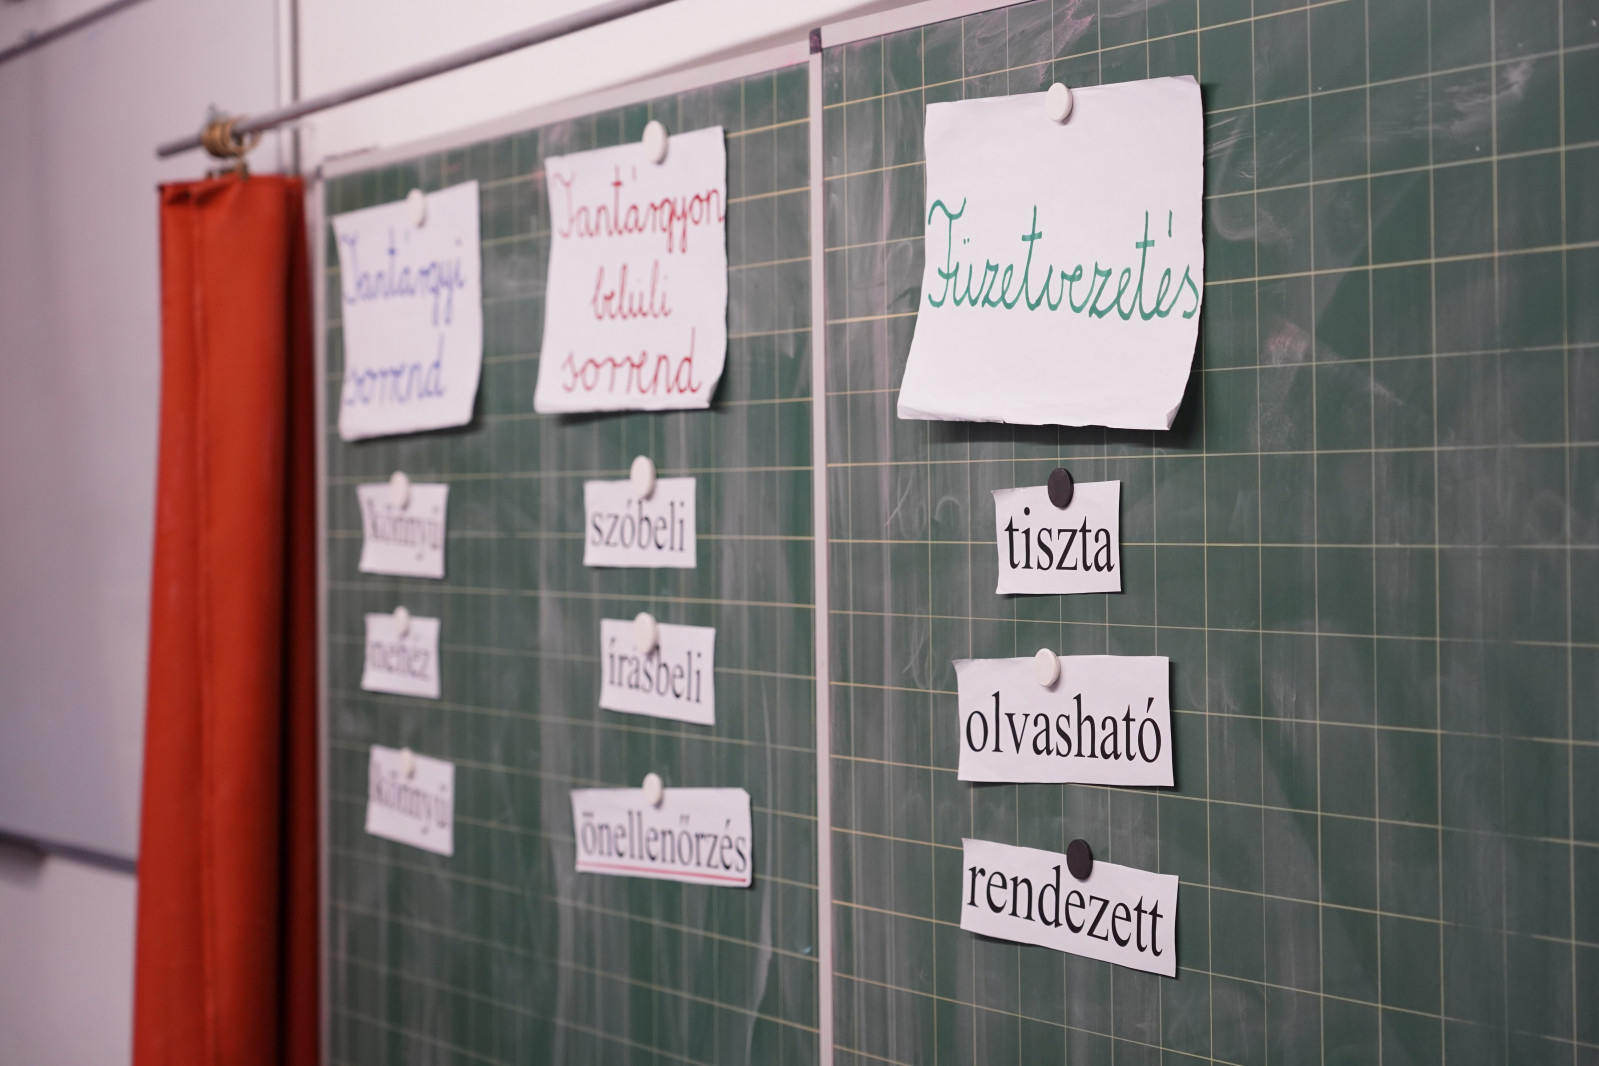 Tantárgyi
sorrend
könnyű
nehéz
könnyű
Tantárgyon
belüli
sorrend
szóbeli
írásbeli
önellenőrzés
Füzetvezetés
tiszta
olvasható
rendezett